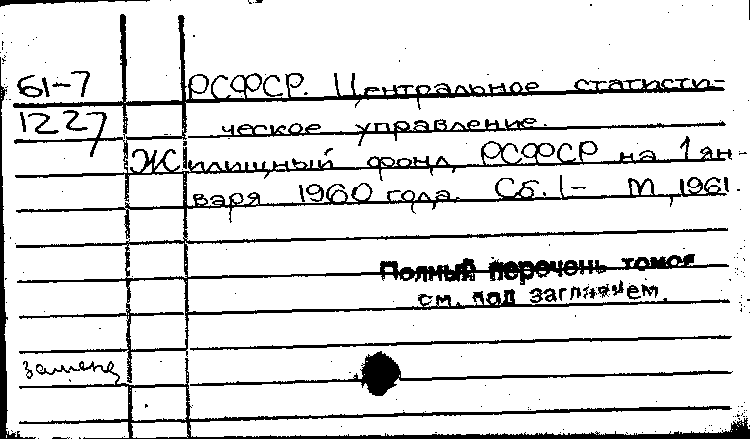 61-7 РСФСР. Центральное статисти-
1227 ческое управление.
Жилищный фонд РСФСР на 1 ян-
варя 1960 года. Сб. 1- М, 1961.
Полный перечень томов
см. под заглавием.
замена